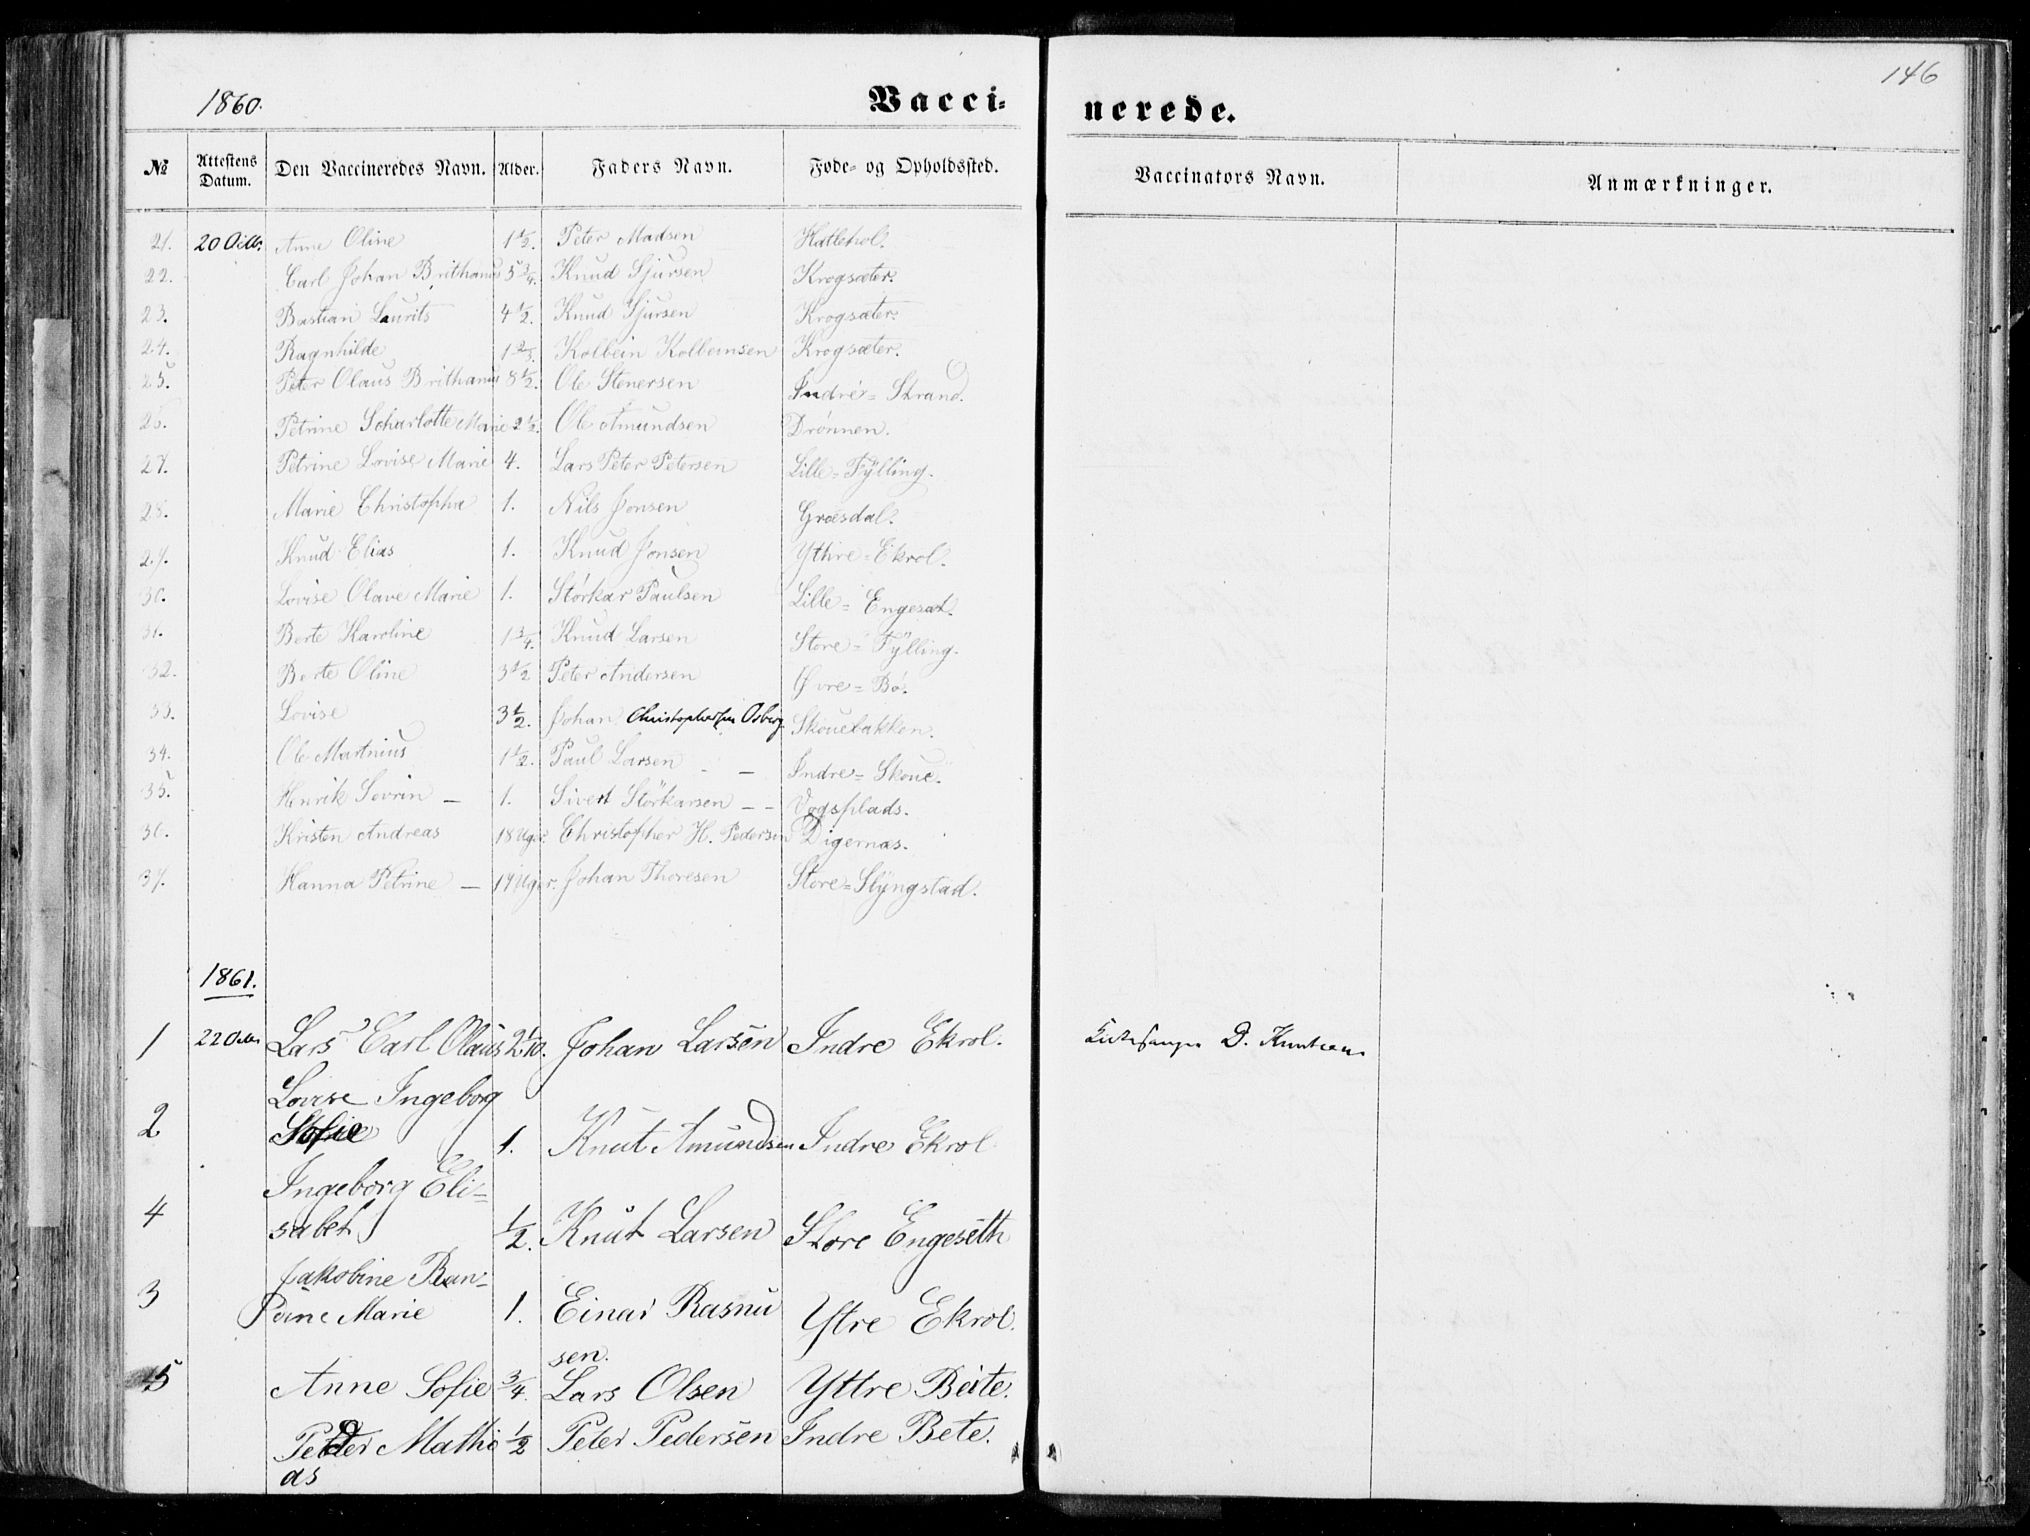 146
1860.
Vacci-
nerede.
№ Attestens Datum. Den Vaccineredes Navn. Alder. Faders Navn. Føde- og Opholdssted. Vaccinators Navn. Anmærkninger.
21. 20 Octbr. Anne Oline 1 1/2. Peter Madsen Hatlehol.
22. Carl Johan Brithanus 5 3/4. Knud Sjursen Krogsæter.
23. Bastian Laurits 4 1/2. Knud Sjursen Krogsæter.
24. Ragnhilde 1 2/3. Kolbein Kolbeinsen Krogsæter.
25. Peter Olaus Brithanus 8 1/2. Ole Stenersen Indre-Strand.
26. Petrine Scharlotte Marie 2 1/2. Ole Amundsen Drønnen.
27. Petrine Lovise Marie 4. Lars Peter Petersen Lille-Fÿlling.
28. Marie Christopha 1. Nils Jonsen Græsdal.
29. Knud Elias 1. Knud Jonsen Yttre-Ekrol.
30. Lovise Olave Marie 1. Störkar Paulsen Lille-Engesæt.
31. Berte Karoline 1 3/4. Knud Larsen Store-Fÿlling.
32. Berte Oline 3 1/2 Peter Andersen Øvre-Bø.
33. Lovise 3 1/2. Johan Christophersen Osberg Skouebakken.
34. Ole Martnius 1 1/2. Paul Larsen - - Indre-Skoue.
35. Henrik Sevrin - 1. Sivert Störkarsen - - Vogsplads.
36. Kristen Andreas 18 Uger. Christopher H. Pedersen Digernæs.
37. Hanna Petrine - 17 Uger. Johan Thoresen Store-Slÿngstad.
1861.
1 22 Octbr Lars Carl Olaus 2 1/10. Johan Larsen Indre Ekrol. Kirkesanger D. Knutsen
Lovise Ingeborg
2 Sofie 1. Knut Amundsen Indre Ekrol
Ingeborg Eli-
4 sabet 1/2. Knut Larsen Store Engeseth
Jakobine Ran-
3 Marie 1. Einar Rasmu Ytre Ekrol.
sen.
5 Anne Sofie 3/4. Lars Olsen Yttre Beite.
Peder Mathi 1/2 Peter Pedersen Indre Bete.
as